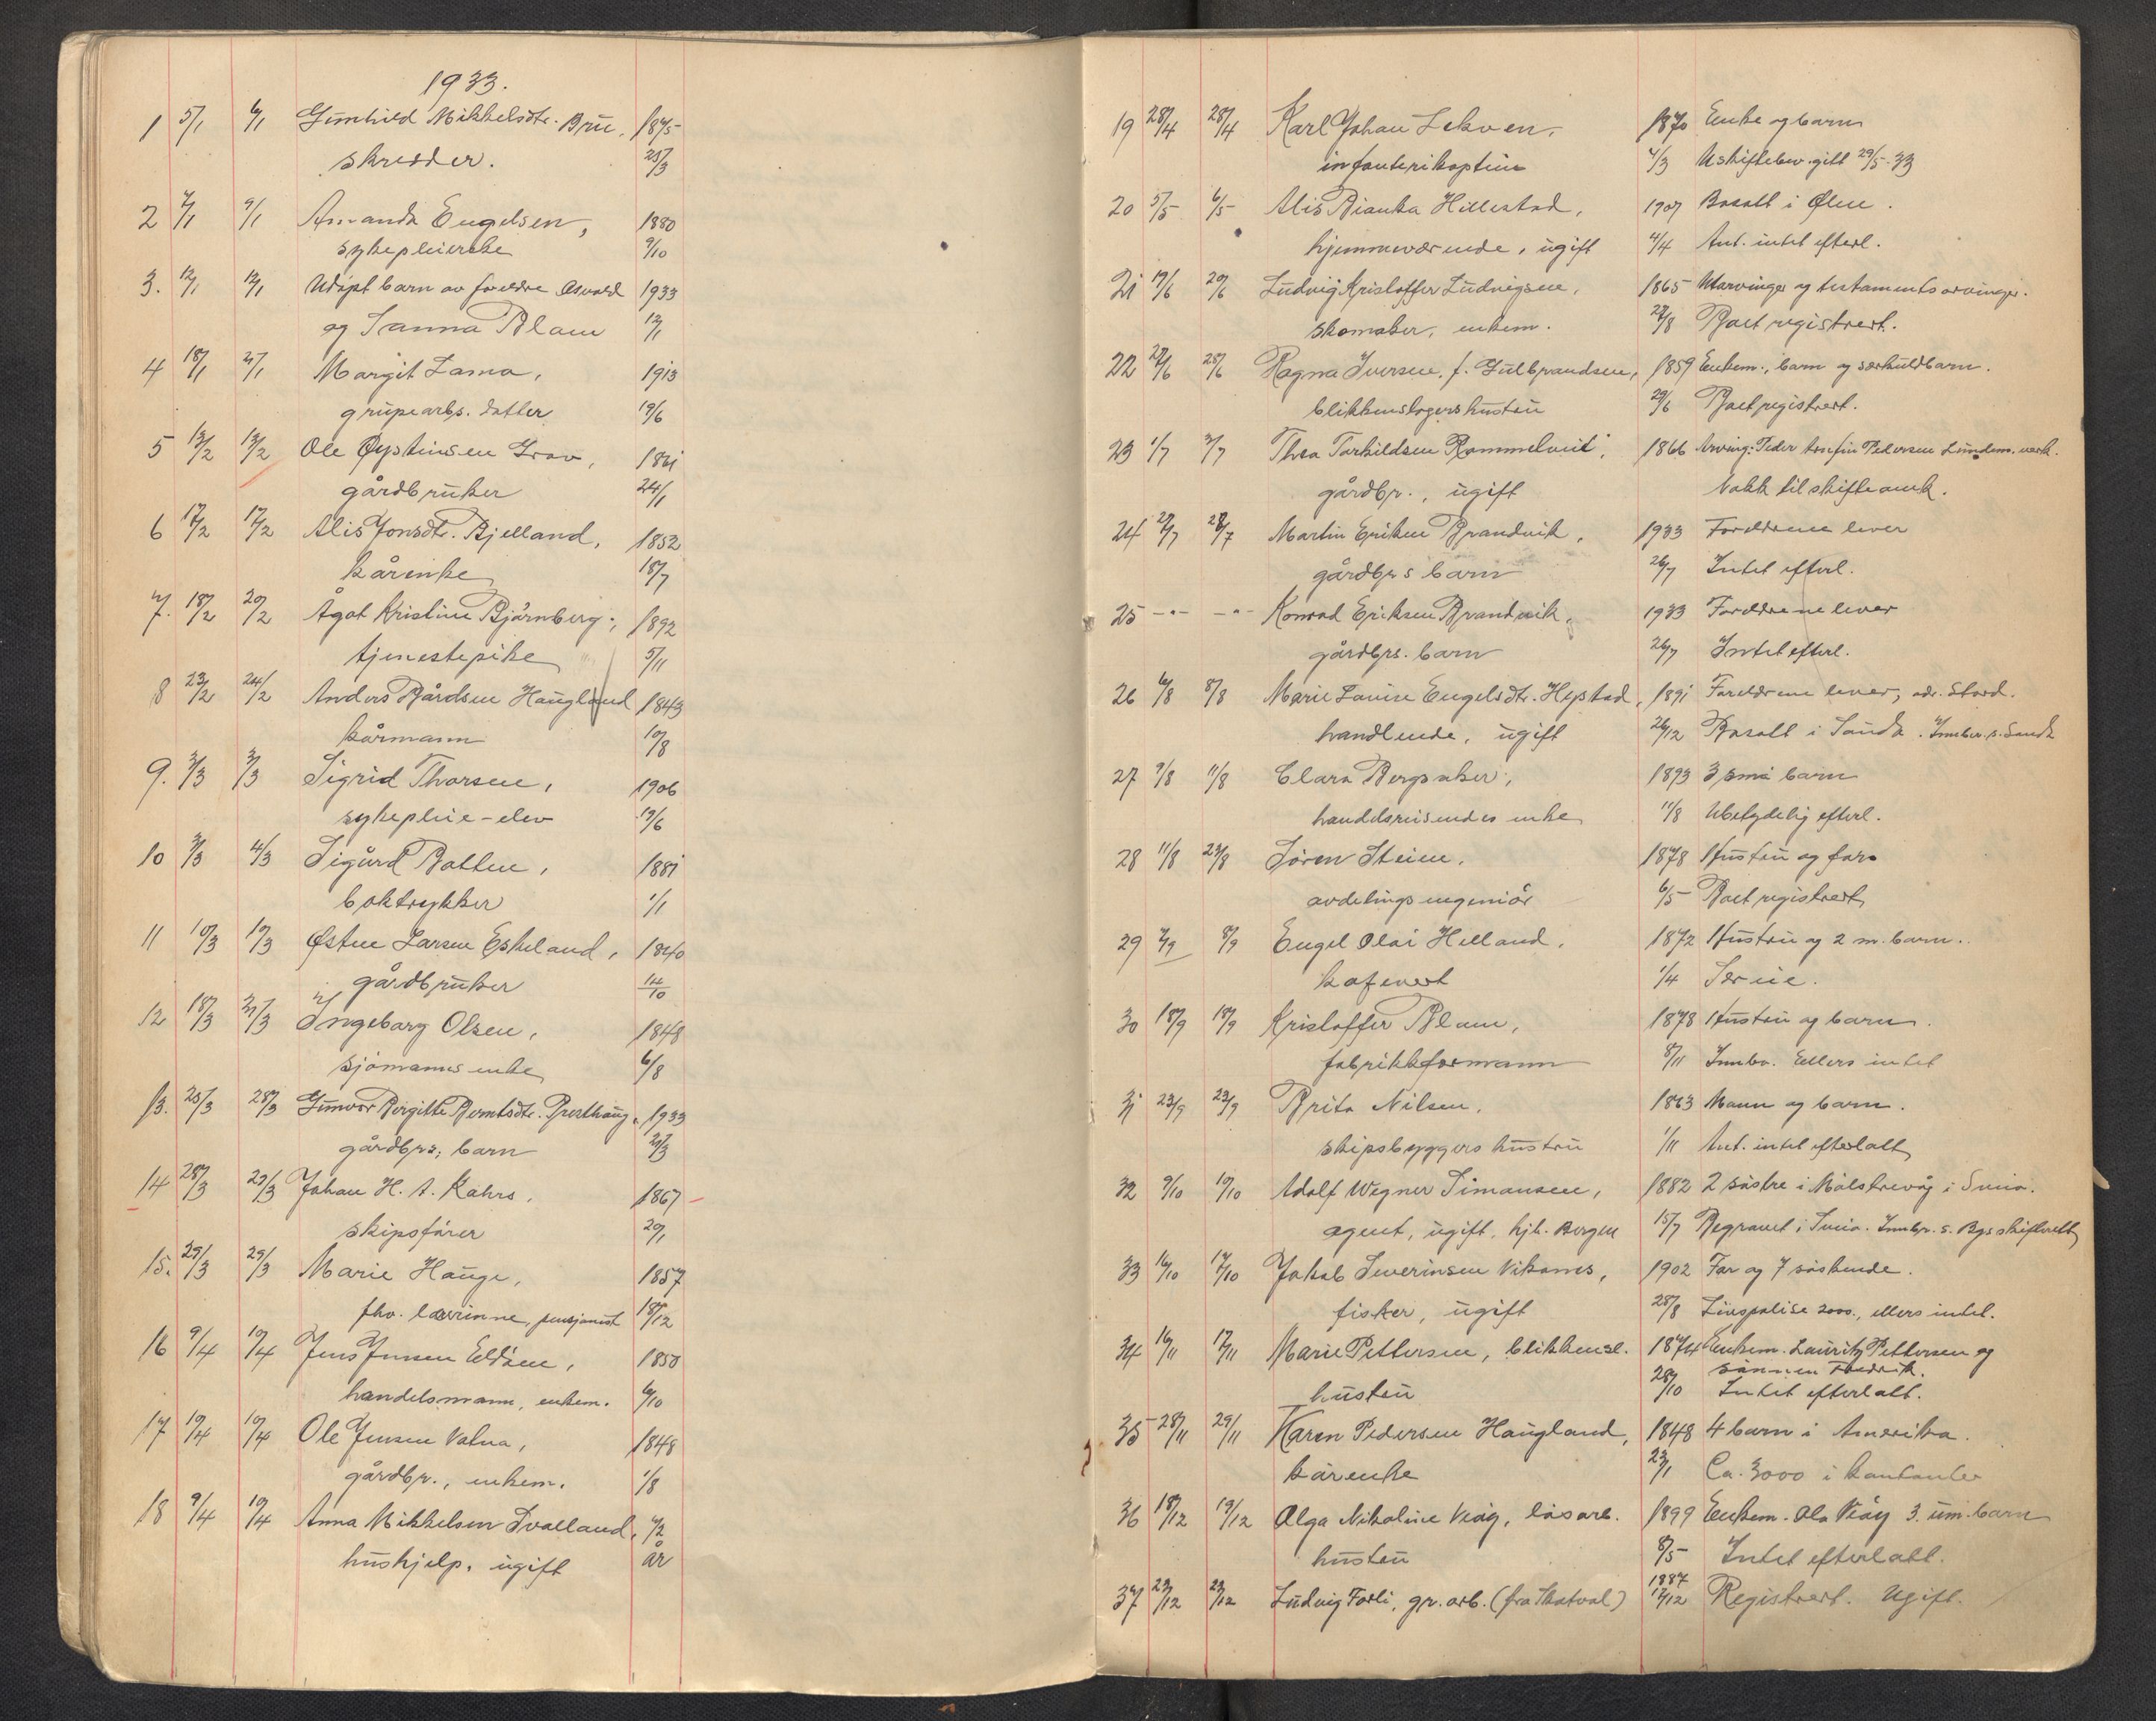 1933.
1 5/1 6/1 Gunhild Mikkelsdtr. Bru, 1875
skredder. 25/3
2 7/1 9/1 Amanda Engelsen, 1880
sykepleierske 9/10
3. 12/1 12/1 Udøpt barn av foreldre Osvald 1933
og Sanna Blam 12/1
4 18/1 21/1 Margit Lama, 1913
grupearbs. datter 19/6
5 13/2 13/2 Ole Øystinsen Grav,
gårdbruker 24/1
6 17/2 17/2 Alis Jonsdtr. Bjelland, 1852
kårenke 18/7
7. 18/2 20/2 Ågot Kristine Bjørnberg, 1892
tjenestepike 5/11
8 23/2 24/2 Anders Bårdsen Haugland 1843
kårmann 10/8
9. 2/3 3/3 Sigrid Thorsen, 1906
sykepleie-elev 19/6
10 3/3 4/3 Sigurd Botten, 1881
boktrykker 1/1
11 10/3 10/3 Østen Larsen Eskeland, 1840
gårdbruker 14/10
12 18/3 21/3 Ingeborg Olsen, 1848
sjømanns enke 6/8
13. 25/3 28/3 Gunvor Birgitte Berntsdtr. Presthaug, 1933
gårdbrs. barn 21/3
14 28/3 29/3 Johan H. A. Kahrs, 1867
skipsfører 20/1
15. 29/3 29/3 Marie Hauge, 1857
fhv. lærerinne, pensjonist 18/12
16 9/4 10/4 Jens Jensen Eldøen, 1850
handelsmann, enkem. 6/10
17 10/4 10/4 Ole Jensen Valna, 1848
gårdbr., enkem. 1/8
18 9/4 10/4 Anna Mikkelsen Svolland,
hushjelp, ugift år
19 28/4 28/4 Karl Johan Lekven, 1870 Enke og barn
infanterikaptein 4/3 Uskiftebev. gitt 29/5-33
20 5/5 6/5 Alis Bianka Hillestad, 1907 Bosatt i Ølen.
hjemmeværende, ugift 4/4 Ant. intet efterl.
21 19/6 20/6 Ludvig Kristoffer Ludvigsen, 1865 Utarvinger og testamentsarvinger.
skomaker, enkem. 22/8 Boet registrert.
22 27/6 28/6 Ragna Iversen, f. Gulbrandsen, 1859 Enkem., barn og særkuldbarn.
blikkenslagers hustru 29/6 Boet registrert.
23 1/7 3/7 Thea Torkildsen Rommelveit, 1866 Arving: Peder Arnfin Pedersen Lundem. verk.
gårdbr., ugift Vakk til skifteamk.
24 27/7 28/7 Martin Eriksen Brandvik, 1933 Foreldrene lever
gårdbrs barn 26/7 Intet efterl.
25 -"- -"- Konrad Eriksen Brandvik, 1933 Foreldrene lever
gårdbrs. barn 26/7 Intet efterl.
26 6/8 8/8 Marie Louise Engelsdtr. Hystad, 1891 Foreldrene lever, adr. Stord.
handlende, ugift 26/12 Bosatt i Sauda. Innber. s. Sauda
27 9/8 11/8 Clara Bergsaker, 1893 3 små barn
handelsreisendes enke 11/8 Ubetydelig efterl.
28 11/8 23/8 Søren Steine, 1878 Hustru og far
avdelingsingeniør 6/5 Boet registrert
29 7/9 8/9 Engel Olai Helland, 1872 Hustru og 2 m. barn.
kafevert 1/4 Ser uie.
30 18/9 18/9 Kristoffer Blam, 1878 Hustru og barn.
fabrikkformann 8/11 Innbo. Ellers intet
31 23/9 23/9 Brita Nilsen, 1863 Mann og barn.
skipsbyggers hustru 1/11 Ant. intet efterlatt
32 9/10 10/10 Adolf Wegner Simonsen, 1882 2 søstre i Mølstrevåg i Sveio.
agent, ugift, hjh. Bergen 15/7 Begravet i Sveio. Innbr. s. Bgs skifterett
33 16/10 17/10 Jakob Severinsen Vikanes, 1902 Far og 7 søskende.
fisker, ugift 28/8 Livspolise 2000., ellers intet.
34 16/11 17/11 Marie Pettersen, blikkensl. 1874 Enkem. Lauritz Pettersen og
sønnen Fredrik.
hustru 28/10 Intet efterlatt.
35 28/11 29/11 Karen Pedersen Haugland, 1848 4 barn i Amerika.
kårenke 23/1 Ca. 3000 i kontanter
36 18/12 19/12 Olga Nikoline Våg, løsarb. 1899 Enkem. Ola Våg 3. um. barn
hustru 8/5 Intet efterlatt.
37 23/12 23/12 Ludvig Forli, gr. arb. (fra Skatval) 1887 17/12 Registrert. Ugift.